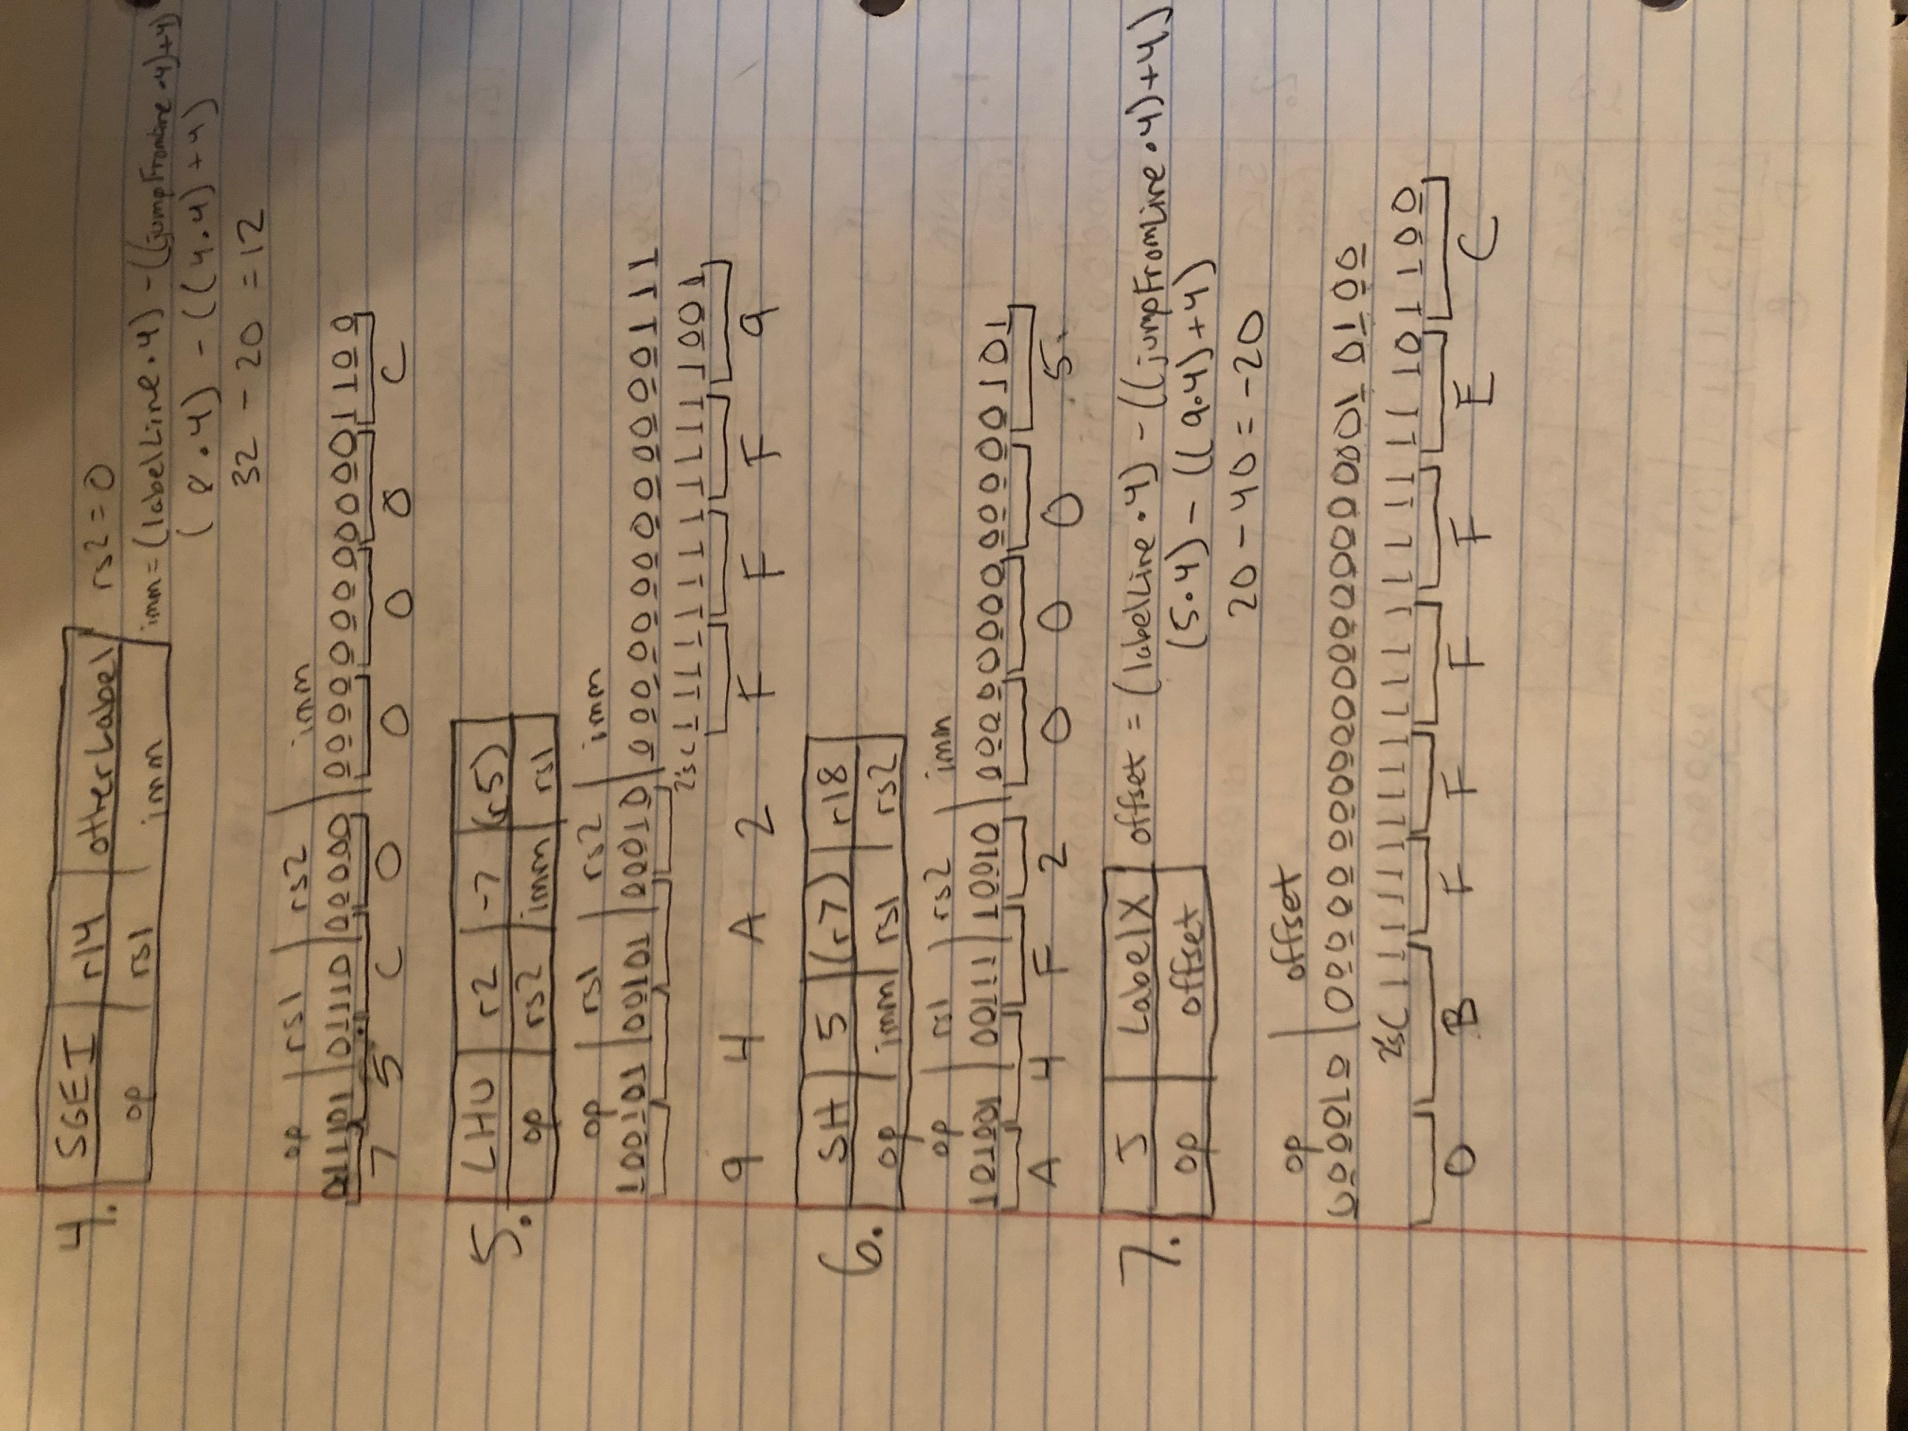 4. SGEI r14 otherLabel rs2 = 0
op rs1 imm imm = (labelLine · 4) - ((jumpFromLine · 4) + 4)
(8 · 4) - ((4 · 4) + 4)
32 - 20 = 12
op rs1 rs2 imm
011101 01110 00000 0000000000001100
7 5 C 0 0 0 0 C
5. LHU r2 -7 (r5)
op rs2 imm rs1
op rs1 rs2 imm
100101 00101 00010 0000000000000111
2's c 1111111111111001
9 4 A 2 F F F 9
6. SH 5 (r7) r18
op imm rs1 rs2
op rs1 rs2 imm
101001 00111 10010 0000000000000101
A 4 F 2 0 0 0 5
7. J LabelX offset = (labelLine · 4) - ((jumpFromLine · 4) + 4)
op offset (5 · 4) - ((9 · 4) + 4)
20 - 40 = -20
op offset
000010 00000000000000000000010100
2'sC 11111111111111111111101100
0 B F F F F E C